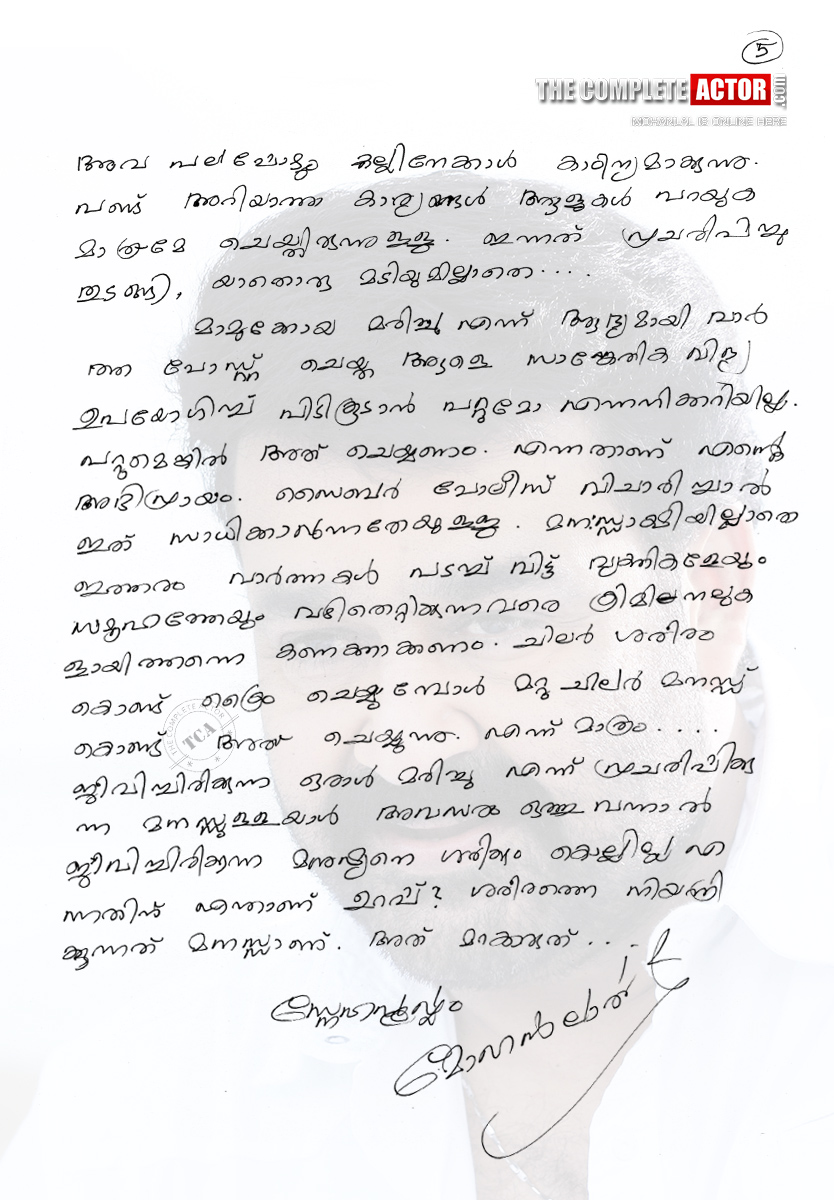 5
THE COMPLETE ACTOR .com
MOHANLAL IS ONLINE HERE
അവ പലപ്പോഴും കല്ലിനേക്കാൾ കാഠിന്യമാകുന്നു.
പണ്ട് അറിയാത്ത കാര്യങ്ങൾ ആളുകൾ പറയുക
മാത്രമേ ചെയ്തിരുന്നുള്ളൂ. ഇന്നത് പ്രചരിപ്പിച്ചു
തുടങ്ങി, യാതൊരു മടിയുമില്ലാതെ....
മാമുക്കോയ മരിച്ചു എന്ന് ആദ്യമായി വാർ
ത്ത പോസ്റ്റ് ചെയ്ത ആളെ സാങ്കേതിക വിദ്യ
ഉപയോഗിച്ച് പിടികൂടാൻ പറ്റുമോ എന്നെനിക്കറിയില്ല.
പറ്റുമെങ്കിൽ അത് ചെയ്യണം. എന്നതാണ് എന്റെ
അഭിപ്രായം. സൈബർ പോലീസ് വിചാരിച്ചാൽ
ഇത് സാധിക്കാവുന്നതേയുള്ളൂ. മനഃസ്സാക്ഷിയില്ലാതെ
ഇത്തരം വാർത്തകൾ പടച്ച് വിട്ട് വ്യക്തികളേയും
സമൂഹത്തേയും വഴിതെറ്റിക്കുന്നവരെ ക്രിമിനലുക
ളായിത്തന്നെ കണക്കാക്കണം. ചിലർ ശരീരം
കൊണ്ട് ക്രൈം ചെയ്യുമ്പോൾ മറ്റു ചിലർ മനസ്സ്
കൊണ്ട് അത് ചെയ്യുന്നു. എന്ന് മാത്രം....
ജീവിച്ചിരിക്കുന്ന ഒരാൾ മരിച്ചു എന്ന് പ്രചരിപ്പിക്കു
ന്ന മനസ്സുള്ളയാൾ അവസരം ഒത്തു വന്നാൽ
ജീവിച്ചിരിക്കുന്ന മനുഷ്യനെ ശരിക്കും കൊല്ലില്ല എ
ന്നതിന് എന്താണ് ഉറപ്പ്? ശരീരത്തെ നിയന്ത്രി
ക്കുന്നത് മനസ്സാണ്. അത് മറക്കരുത്...
സ്നേഹപൂർവ്വം
മോഹൻലാൽ
THE COMPLETE ACTOR
TCA